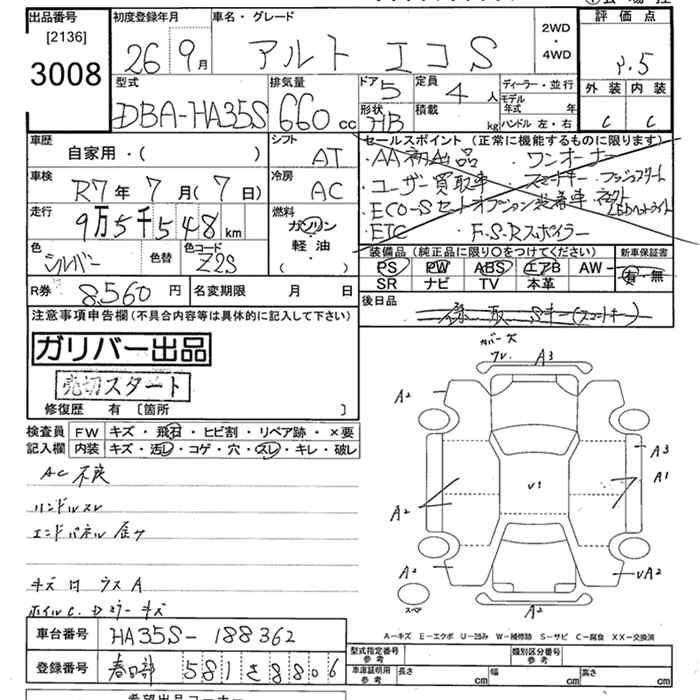 出品番号
[2136]
3008
初度登録年月
26 9月
車名・グレード
アルト エコS
2WD
・
4WD
評価点
3.5
外装 内装
C C
型式
DBA-HA35S
排気量
660 cc
ドア
5
定員
4 人
形状
HB
積載
kg
ディーラー・並行
モデル年式 年
ハンドル 左・右
車歴
自家用・( )
シフト
AT
車検
R7年 7月(7日)
冷房
AC
走行
9万5千548 km
燃料
ガソリン
軽油
・
( )
色
シルバー
色替
色コード
Z2S
R券
8,560 円
名変期限 月 日
セールスポイント (正常に機能するものに限ります)
・AA初出品 ・ワンオーナー
・ユーザー買取車 スマートキー・プッシュスタート
・ECO-Sセットオプション装着車
・ETC ・F・S・Rスポイラー
装備品(純正品に限り○をつけてください)
新車保証書
PS PW ABS エアB AW
SR ナビ TV 本革
有・無
後日品
注意事項申告欄(不具合内容等は具体的に記入して下さい)
ガリバー出品
売切スタート
修復歴 有 [箇所 ]
検査員記入欄
FW キズ・飛石・ヒビ割・リペア跡・×要
内装 キズ・汚レ・コゲ・穴・スレ・キレ・破レ
AC不良
ハンドルスレ
エンドパネル
キズ 凹 ウス A
ホイルC. Dミラーキズ
カバー欠
ワレ
A3
A2
A3
A1
V1
A2
A2
UA2
A2
スペア
A-キズ E-エクボ U-凹み W-補修跡 S-サビ C-腐食 XX-交換済
車台番号
HA35S-188362
登録番号
春日部 581 さ 8806
型式指定番号
参考
類別区分番号
参考
車庫証明用
参考
長さ cm 幅 cm 高さ cm
希望出品コーナー